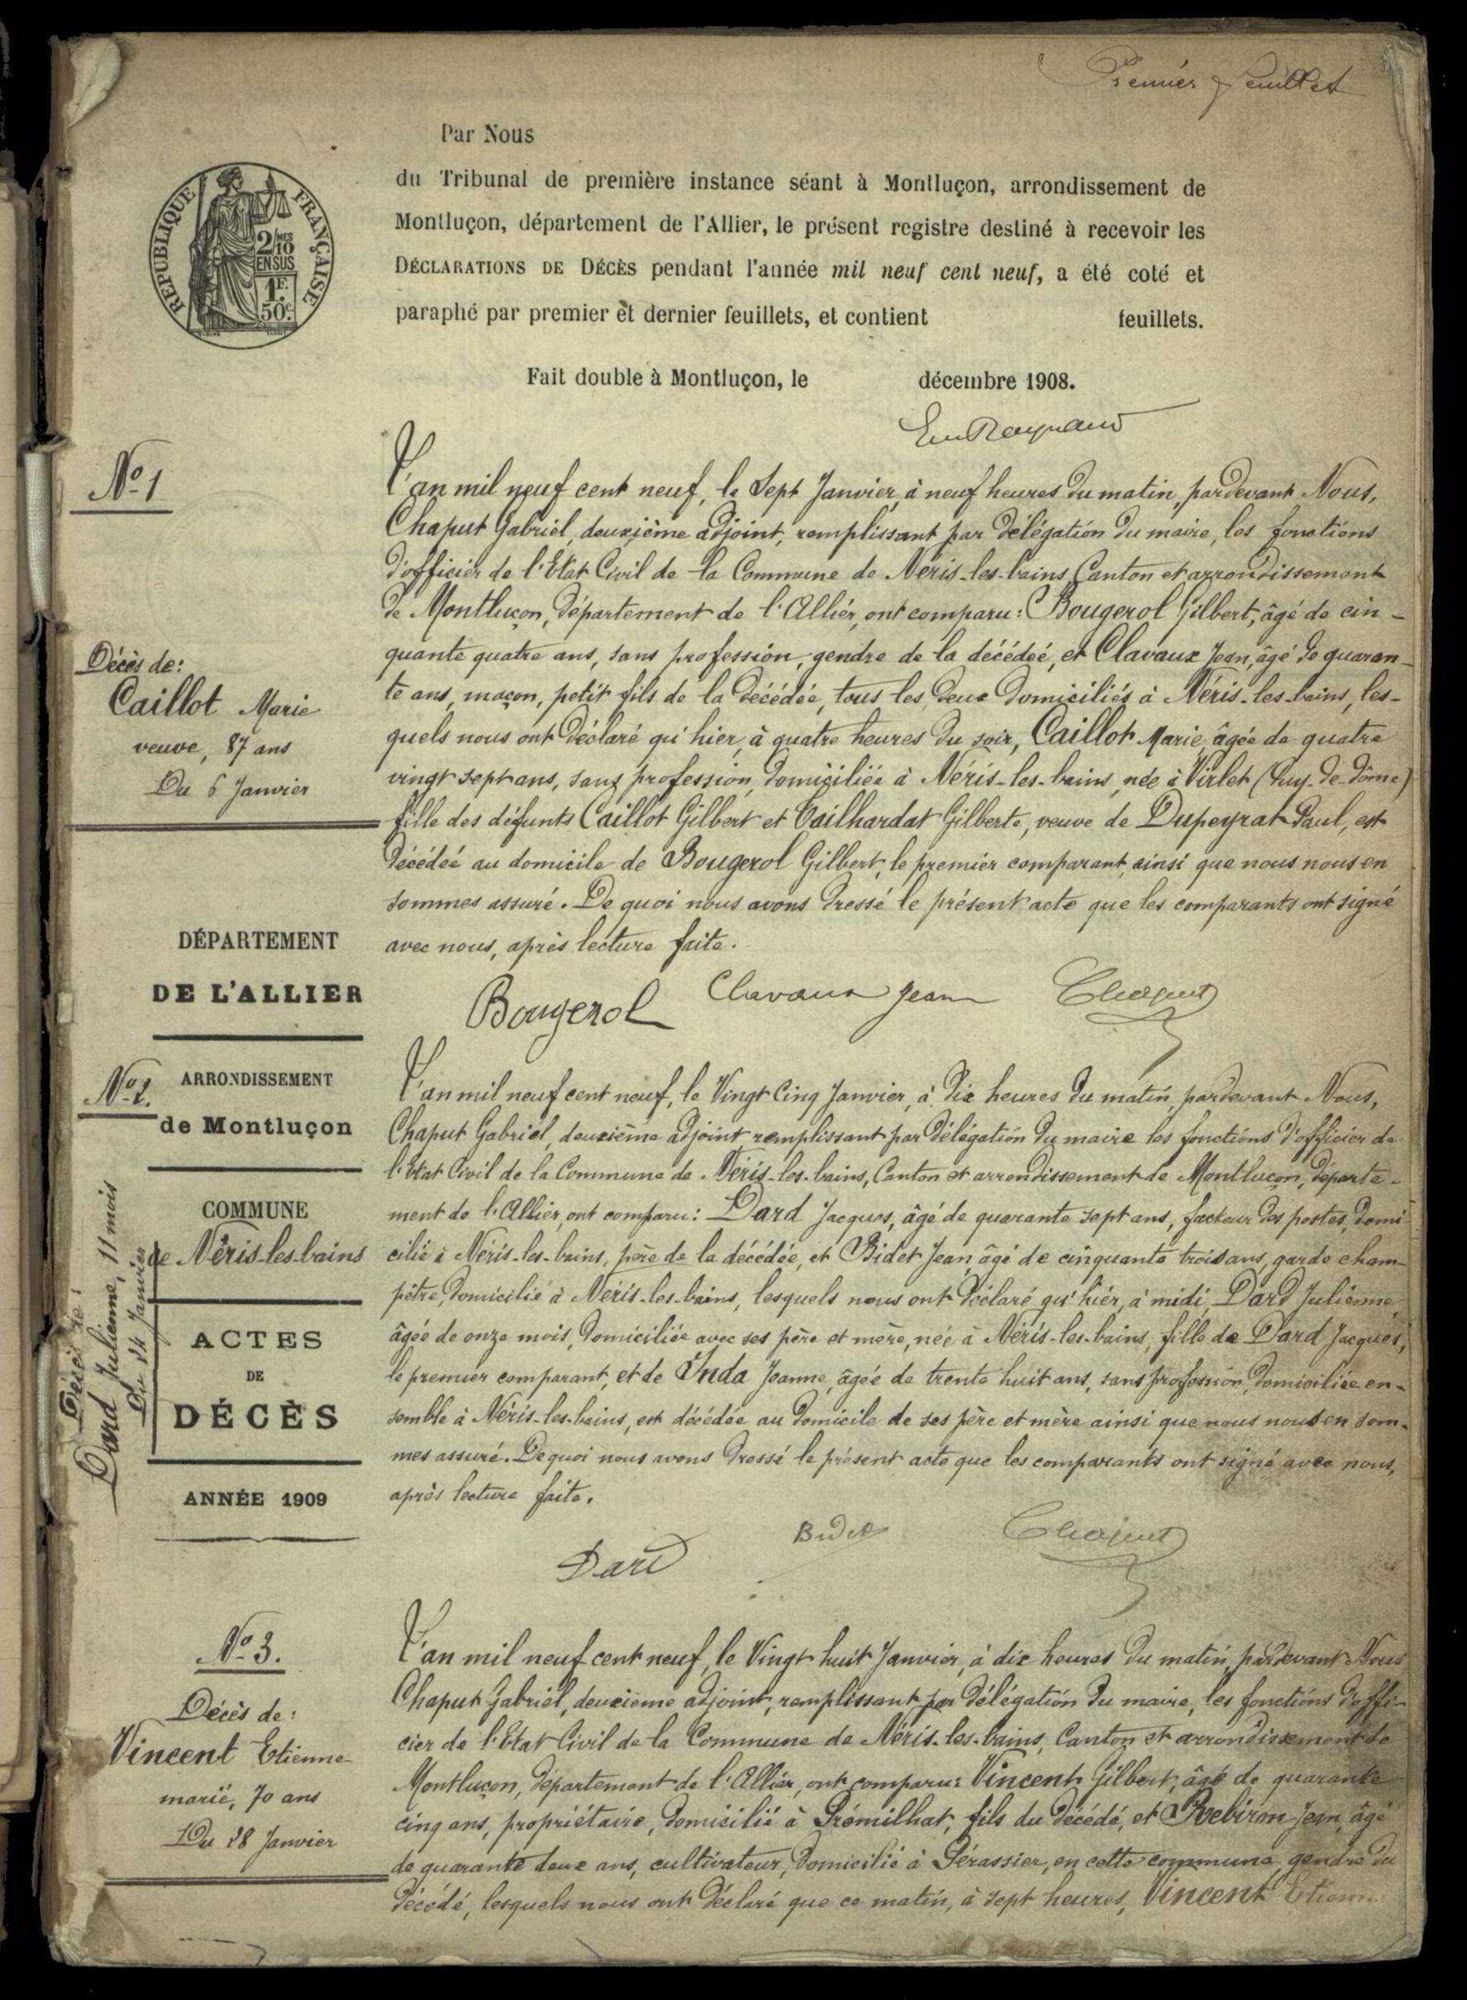 Premier feuillet
Par Nous
du Tribunal de première instance séant à Montluçon, arrondissement de
Montluçon, département de l'Allier, le présent registre destiné à recevoir les
DÉCLARATIONS DE DÉCÈS pendant l'année mil neuf cent neuf, a été coté et
paraphé par premier et dernier feuillets, et contient feuillets.
Fait double à Montluçon, le décembre 1908.
RÉPUBLIQUE FRANÇAISE
2/10 MES
EN SUS
1F.
50c.
N° 1
Décès de:
Caillot Marie
veuve, 87 ans
Du 6 Janvier
L'an mil neuf cent neuf, le Sept Janvier, à neuf heures du matin, pardevant Nous,
Chaput Gabriel, deuxième adjoint, remplissant par délégation du maire, les fonctions
d'officier de l'Etat Civil de la Commune de Néris-les-bains, Canton et arrondissement
de Montluçon, département de l'Allier, ont comparu: Bougerol Gilbert, âgé de cin-
quante quatre ans, sans profession, gendre de la décédée, et Clavaux Jean, âgé de quaran-
te ans, maçon, petit fils de la décédée, tous les deux domiciliés à Néris-les-bains, les-
quels nous ont déclaré qu'hier, à quatre heures du soir, Caillot Marie, âgée de quatre
vingt sept ans, sans profession, domiciliée à Néris-les-bains, née à Virlet (Puy-de-dôme)
fille des défunts Caillot Gilbert et Gilberte, veuve de Dupeyrat Paul, est
décédée au domicile de Bougerol Gilbert, le premier comparant, ainsi que nous nous en
sommes assuré. De quoi nous avons dressé le présent acte que les comparants ont signé
avec nous, après lecture faite.
Bougerol Clavaux Jean Chaput
DÉPARTEMENT
DE L'ALLIER
ARRONDISSEMENT
de Montluçon
COMMUNE
de Néris-les-bains
ACTES
DE
DÉCÈS
ANNÉE 1909
N° 2.
Décès de:
Dard Julienne, 11 mois
Du 24 Janvier
L'an mil neuf cent neuf, le Vingt Cinq Janvier, à dix heures du matin, pardevant Nous,
Chaput Gabriel, deuxième adjoint, remplissant par délégation du maire les fonctions d'officier de
l'Etat Civil de la Commune de Néris-les-bains, Canton et arrondissement de Montluçon, départe-
ment de l'Allier, ont comparu: Dard Jacques, âgé de quarante sept ans, facteur des postes, domi-
cilié à Néris-les-bains, père de la décédée, et Bidet Jean, âgé de cinquante trois ans, garde cham-
pêtre, domicilié à Néris-les-bains, lesquels nous ont déclaré qu'hier, à midi, Dard Julienne,
âgée de onze mois, domiciliée avec ses père et mère, née à Néris-les-bains, fille de Dard Jacques,
le premier comparant, et de Inda Jeanne, âgée de trente huit ans, sans profession, domiciliée en-
semble à Néris-les-bains, est décédée au domicile de ses père et mère ainsi que nous nous en som-
mes assuré. De quoi nous avons dressé le présent acte que les comparants ont signé avec nous,
après lecture faite.
Dard Bidet Chaput
N° 3.
Décès de:
Vincent Etienne
marié, 70 ans
Du 28 Janvier
L'an mil neuf cent neuf, le Vingt huit Janvier, à dix heures du matin, pardevant Nous
Chaput Gabriel, deuxième adjoint, remplissant par délégation du maire, les fonctions d'offi-
cier de l'Etat Civil de la Commune de Néris-les-bains, Canton et arrondissement de
Montluçon, département de l'Allier, ont comparu: Vincent Gilbert, âgé de quarante
cinq ans, propriétaire, domicilié à Prémilhat, fils du décédé, et Jean, âgé
de quarante deux ans, cultivateur, domicilié à Pérassier, en cette commune, gendre du
décédé, lesquels nous ont déclaré que ce matin, à sept heures, Vincent Etienne